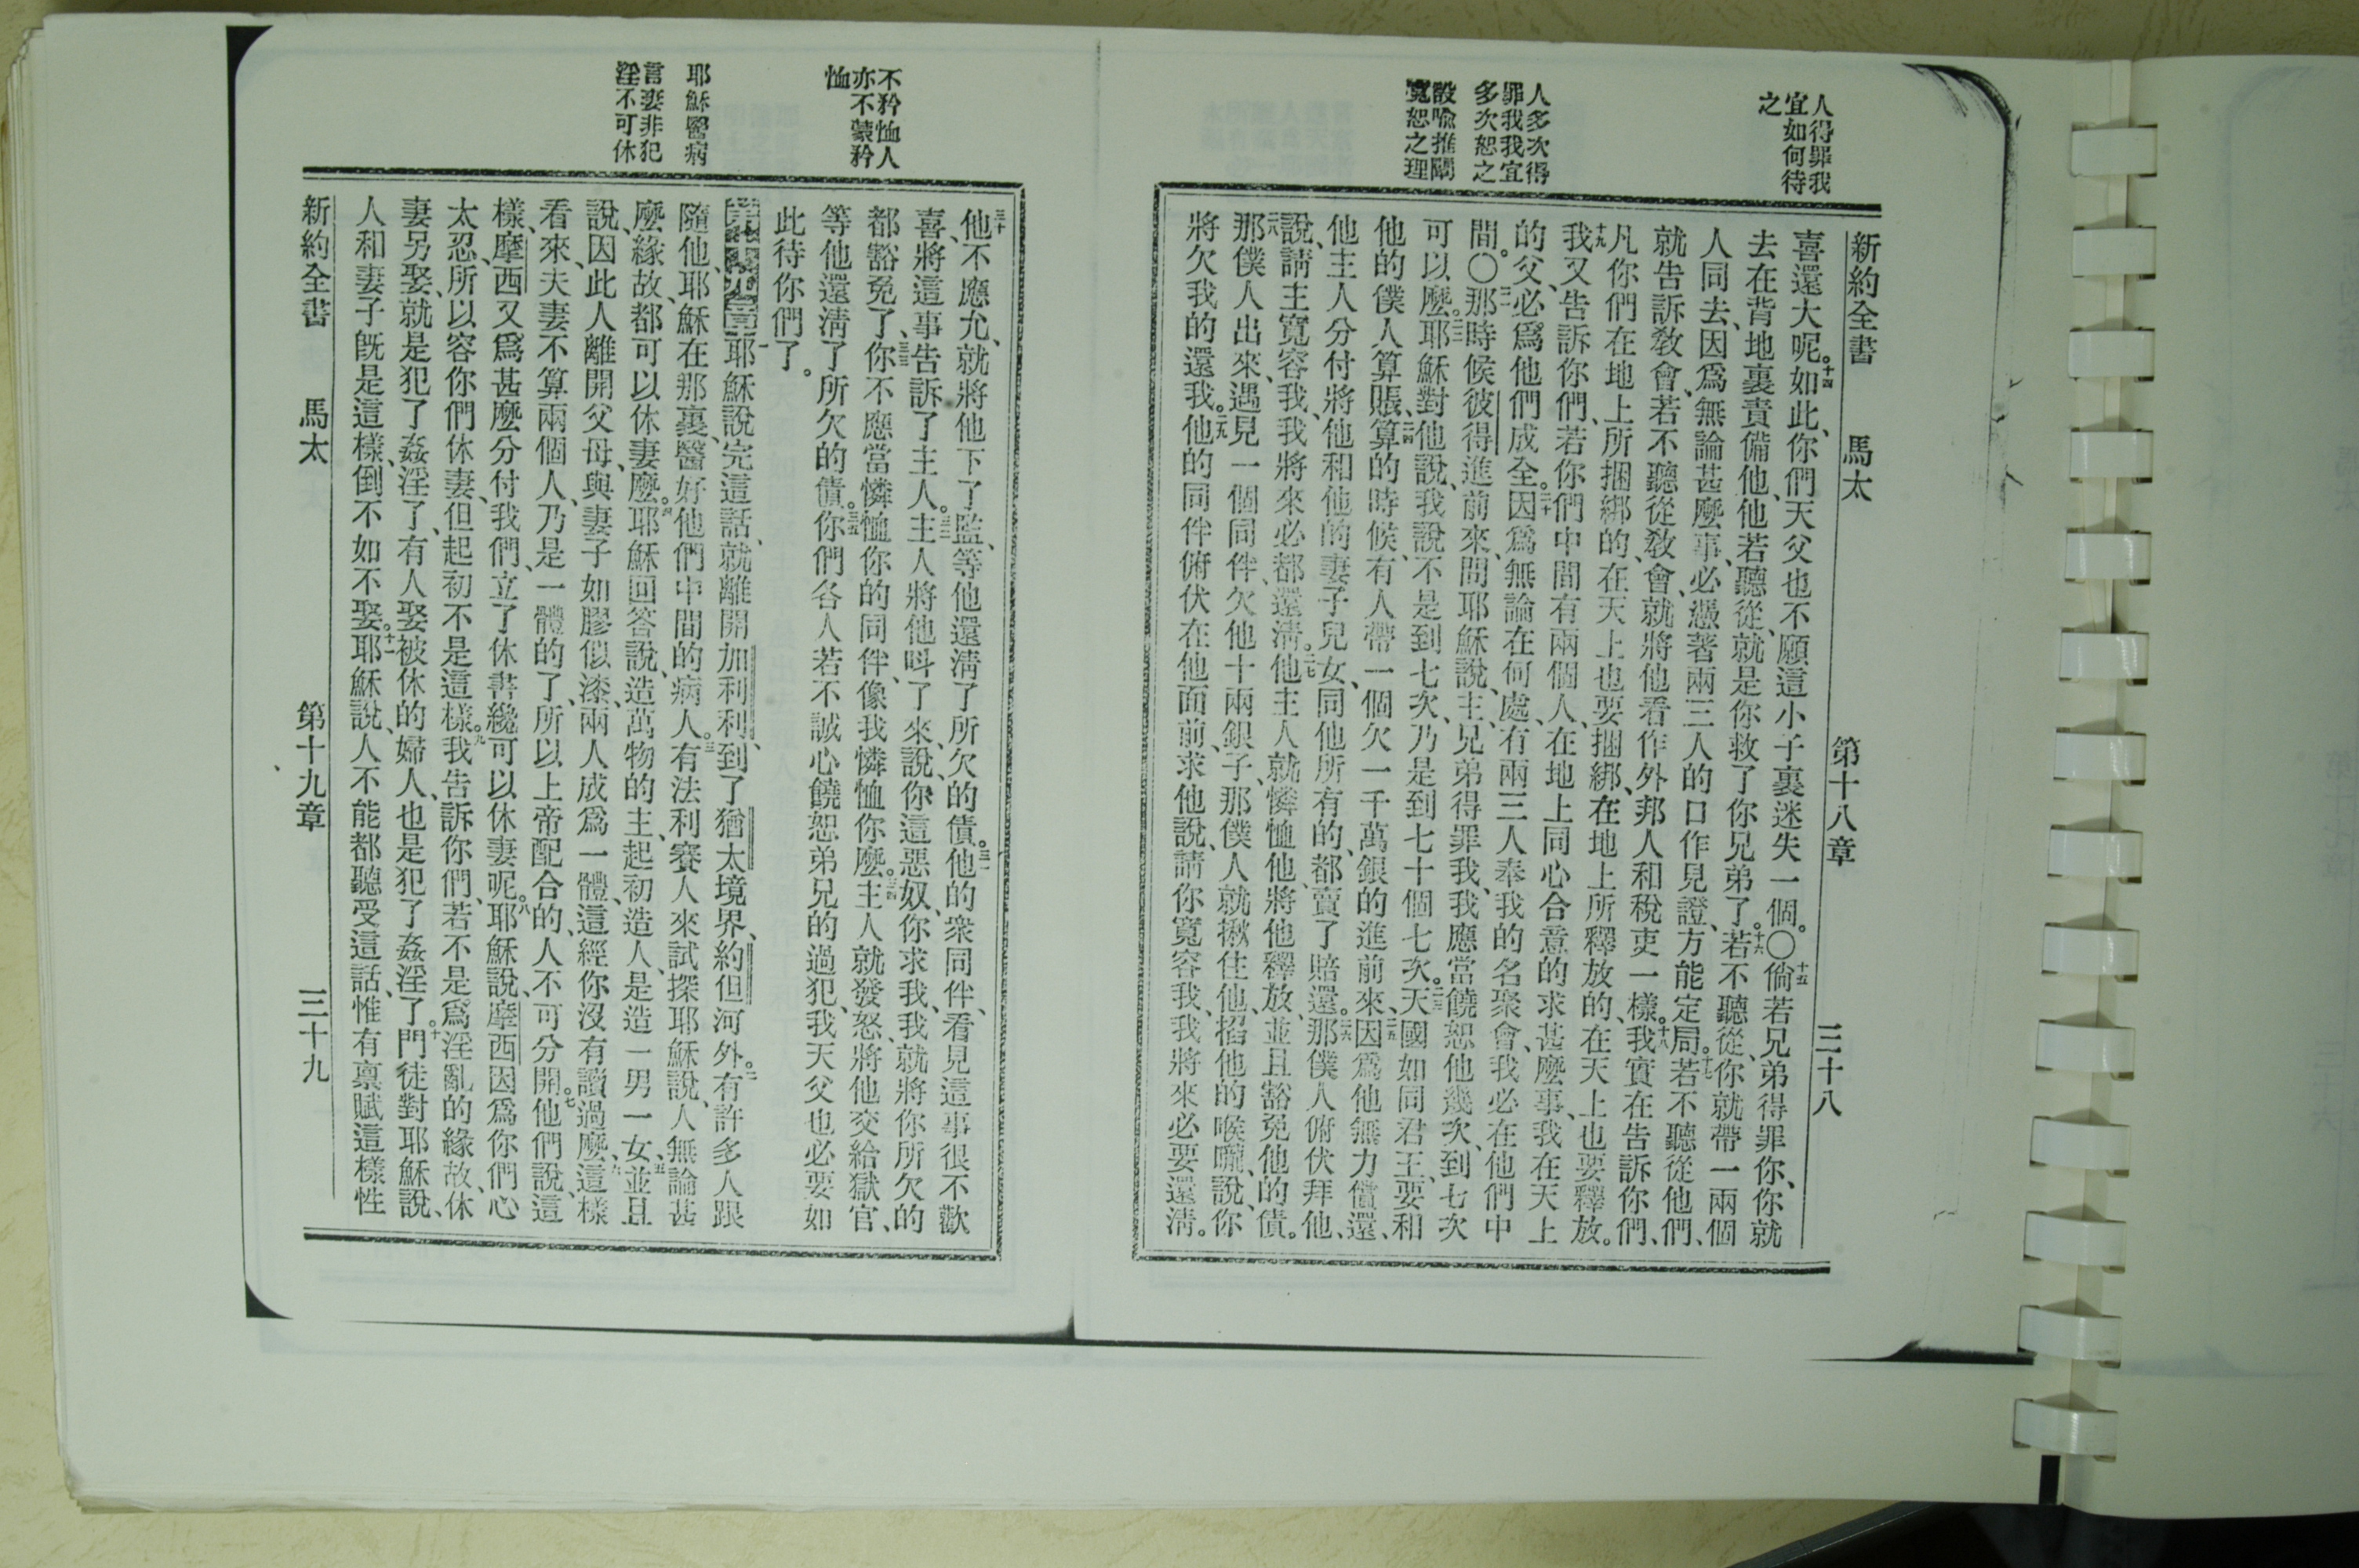 人得罪我
宜如何待
之
人多次得
罪我我宜
多次恕之
設喩推闡
寬恕之理
新約全書 馬太 第十八章 三十八
喜還大呢。十四如此、你們天父也不願這小子裏迷失一個。〇十五倘若兄弟得罪你、你就
去在背地裏責備他、他若聽從、就是你救了你兄弟了。十六若不聽從、你就帶一兩個
人同去、因爲無論甚麼事、必憑著兩三人的口作見證、方能定局。十七若不聽從他們、
就告訴敎會、若不聽從敎會、就將他看作外邦人和稅吏一樣。十八我實在告訴你們、
凡你們在地上所捆綁的、在天上也要捆綁、在地上所釋放的、在天上也要釋放。
十九我又告訴你們、若你們中間有兩個人、在地上同心合意的求甚麼事、我在天上
的父、必爲他們成全。二十因爲無論在何處、有兩三人奉我的名聚會、我必在他們中
間。〇二一那時候彼得進前來、問耶穌說、主、兄弟得罪我、我應當饒恕他幾次、到七次
可以麼。二二耶穌對他說、我說不是到七次、乃是到七十個七次。二三天國如同君王、要和
他的僕人算賬、二四算的時候、有人帶一個欠一千萬銀的進前來、二五因爲他無力償還、
他主人分付將他和他的妻子兒女、同他所有的、都賣了賠還。二六那僕人俯伏拜他、
說、請主寬容我、我將來必都還淸。二七他主人就憐恤他、將他釋放、並且豁免他的債。
二八那僕人出來、遇見一個同伴、欠他十兩銀子、那僕人就揪住他、掐他的喉嚨、說、你
將欠我的還我。二九他的同伴俯伏在他面前、求他說、請你寬容我、我將來必要還淸。
不矜恤人
亦不蒙矜
恤
耶穌醫病
言妻非犯
淫不可休
三十他不應允、就將他下了監、等他還淸了所欠的債。三一他的衆同伴、看見這事很不歡
喜、將這事告訴了主人。三二主人將他呌了來、說、你這惡奴、你求我、我就將你所欠的
都豁免了、三三你不應當憐恤你的同伴、像我憐恤你麼。三四主人就發怒、將他交給獄官、
等他還淸了所欠的債。三五你們各人若不誠心饒恕弟兄的過犯、我天父也必要如
此待你們了。
第十九章一耶穌說完這話、就離開加利利、到了猶太境界、約但河外。二有許多人跟
隨他、耶穌在那裏、醫好他們中間的病人。三有法利賽人來試探耶穌說、人無論甚
麼緣故、都可以休妻麼。四耶穌回答說、造萬物的主、起初造人、是造一男一女、五並且
說、因此人離開父母、與妻子如膠似漆、兩人成爲一體、這經你沒有讀過麼、六這樣
看來、夫妻不算兩個人、乃是一體的了、所以上帝配合的、人不可分開。七他們說、這
樣、摩西又爲甚麼分付我們、立了休書纔可以休妻呢。八耶穌說、摩西因爲你們心
太忍、所以容你們休妻、但起初不是這樣。九我告訴你們、若不是爲淫亂的緣故、休
妻另娶、就是犯了姦淫了、有人娶被休的婦人、也是犯了姦淫了。十門徒對耶穌說、
人和妻子旣是這樣、倒不如不娶。十一耶穌說、人不能都聽受這話、惟有禀賦這樣性
新約全書 馬太 第十九章 三十九